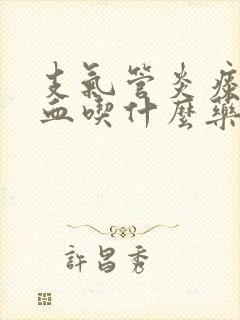 支氣管炎痰
血喫什麼藥
許昌秀